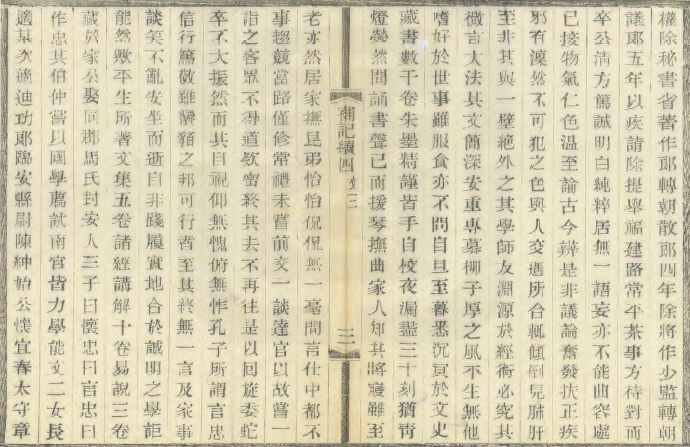 權除秘書省著作郎轉朝散郎四年除將作少監轉朝
議郎五年以疾請除提舉福建路常平茶事方待對而
卒公清方篤誠明白純粹居無一語妄亦不能曲容處
已接物氣仁色溫至論古今辨是非議論奮發扶正疾
邪有凜然不可犯之色與人交遇所合輒傾倒見肺肝
至非其與一壁絕外之其學師友淵源於經術必究其
微言大法其文簡深安重專慕柳子厚之風平生無他
嗜好於世事雖服食亦不問自旦至暮悉沉冥於文史
藏書數千卷朱墨精謹皆手自校夜漏盡三十刻猶青
燈熒然間誦書聲已而援琴撫曲家人知其將寢雖至
記續四
三
老亦然居家撫昆弟怡怡侃侃無一毫間言仕中都不
事趨競當路僅修常禮未嘗前交一談達官以故嘗一
詣之客眾不得道欵密終其去不再往是以回旋委蛇
卒不大振然而其自視仰無愧俯無怍孔子所謂言忠
信行篤敬雖蠻貊之邦可行者至其終無一言及家事
談笑不亂安坐而逝自非踐履實地合於誠明之學詎
能然歟平生所著文集五卷諸經講解十卷易說三卷
藏於家公娶同郡馬氏封安人三子曰懷忠曰言忠曰
作忠其伯仲嘗以國學薦試南宮皆力學能文二女長
適某次適迪功郎臨安縣尉陳紳始公懷宜春太守章